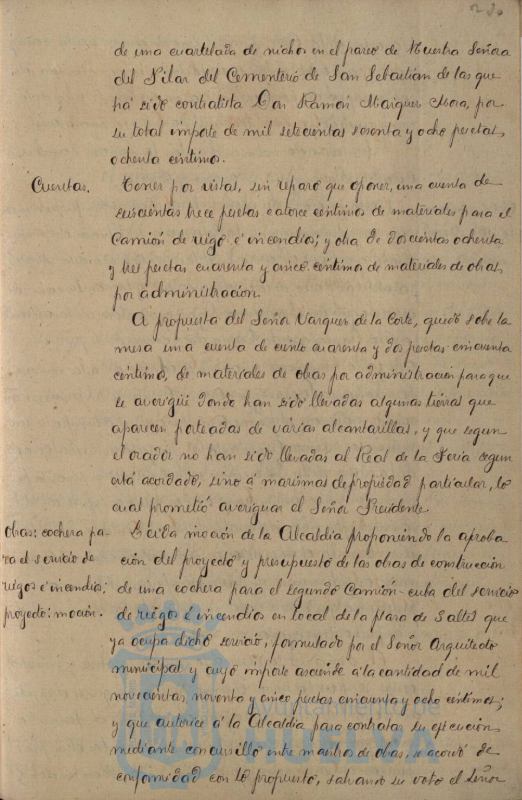 de una cuartelada de nichos en el paseo de Nuestra Señora
del Pilar del Cementerio de San Sebastián de las que
ha sido contratista Don Ramón Marquez Mora, por
su total importe de mil setecientas sesenta y ocho pesetas,
ochenta céntimos.
Cuentas.
Tener por vistas, sin reparo que oponer, una cuenta de
seiscientas trece pesetas catorce céntimos de materiales para el
Camión de riego é incendios; y otra de doscientas ochenta
y tres pesetas cuarenta y cinco céntimos de materiales de obras
por administración.
A propuesta del Señor Vazquez de la Corte, quedó sobre la
mesa una cuenta de ciento cuarenta y dos pesetas cincuenta
céntimos, de materiales de obras por administración para que
se averigüe donde han sido llevadas algunas tierras que
aparecen porteadas de várias alcantarillas, y que segun
el orador no han sido llevadas al Real de la Feria segun
está acordado, sino á marismas de propiedad particular, lo
cual prometió averiguar el Señor Presidente.
Obras: cochera pa-
ra el servicio de
riegos é incendios;
proyecto: moción.
Leida moción de la Alcaldia proponiendo la aproba-
ción del proyecto y presupuesto de las obras de construcción
de una cochera para el segundo Camión-cuba del servicio
de riegos é incendios en local de la plaza de Saltés que
ya ocupa dicho servicio, formulado por el Señor Arquitecto
municipal y cuyo importe asciende á la cantidad de mil
novecientas, noventa y cinco pesetas cincuenta y ocho céntimos;
y que autorice á la Alcaldia para contratar su ejecución
mediante concursillo entre maestros de obras, se acordó de
conformidad con lo propuesto, salvando su voto el Señor
Ayuntamiento de
HUELVA